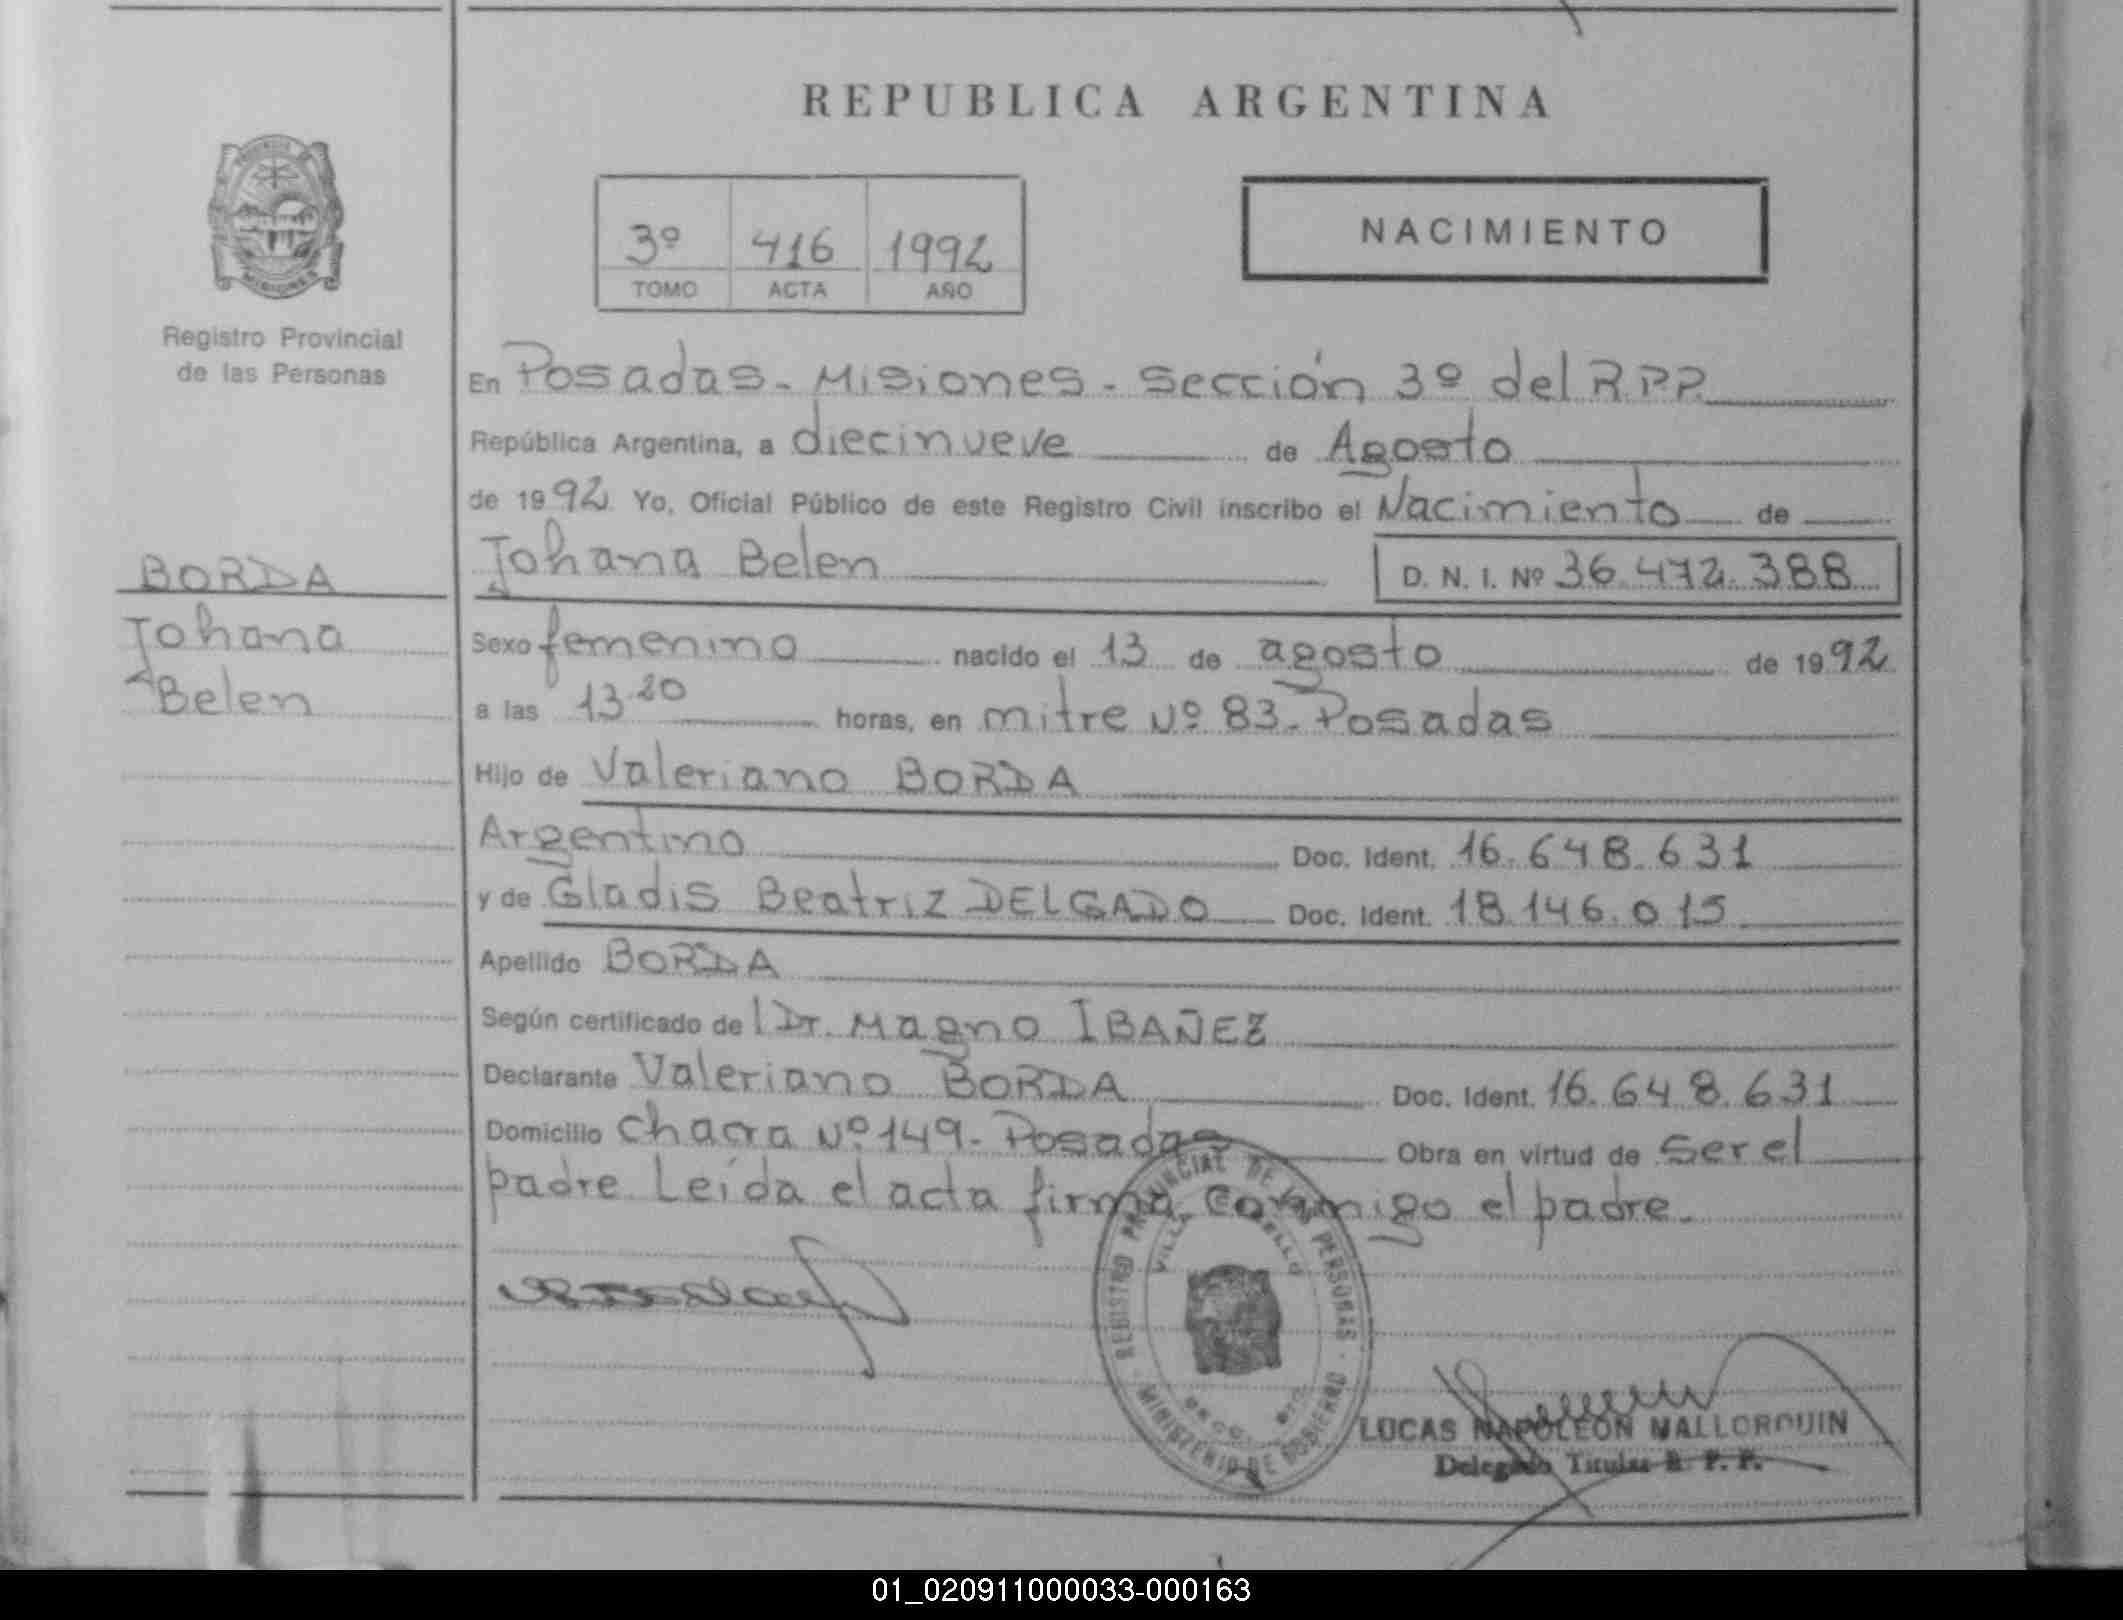 REPUBLICA ARGENTINA
3º 416 1992
TOMO ACTA AÑO
NACIMIENTO
PROVINCIA
MISIONES
Registro Provincial
de las Personas
BORDA
Johana
Belen
En Posadas - Misiones - Sección 3º del R.P.P.
República Argentina, a diecinueve de Agosto
de 1992. Yo, Oficial Público de este Registro Civil inscribo el Nacimiento de
Johana Belen D. N. I. Nº 36.472.388
Sexo femenino nacido el 13 de agosto de 1992
a las 13.20 horas, en mitre Nº 83 - Posadas
Hijo de Valeriano BORDA
Argentino Doc. Ident. 16.648.631
y de Gladis Beatriz DELGADO Doc. Ident. 18.146.015
Apellido BORDA
Según certificado de l Dr. Magno IBAÑEZ
Declarante Valeriano BORDA Doc. Ident. 16.648.631
Domicilio Chacra Nº 149 - Posadas Obra en virtud de ser el
padre. Leída el acta firma conmigo el padre.
REGISTRO PROVINCIAL DE LAS PERSONAS
VILLA
MINISTERIO DE GOBIERNO
LUCAS NAPOLEON MALLORQUIN
Delegado Titular R. P. P.
01_020911000033-000163